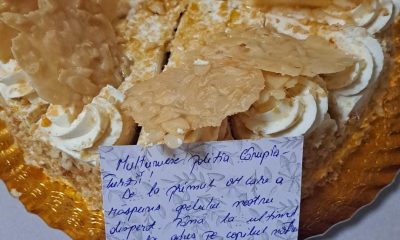 Multumesc! Politia Campia
Turzii!
De la primul om care a
raspuns apelului nostru
disperat. Pana la ultimul
pe copilul nostru